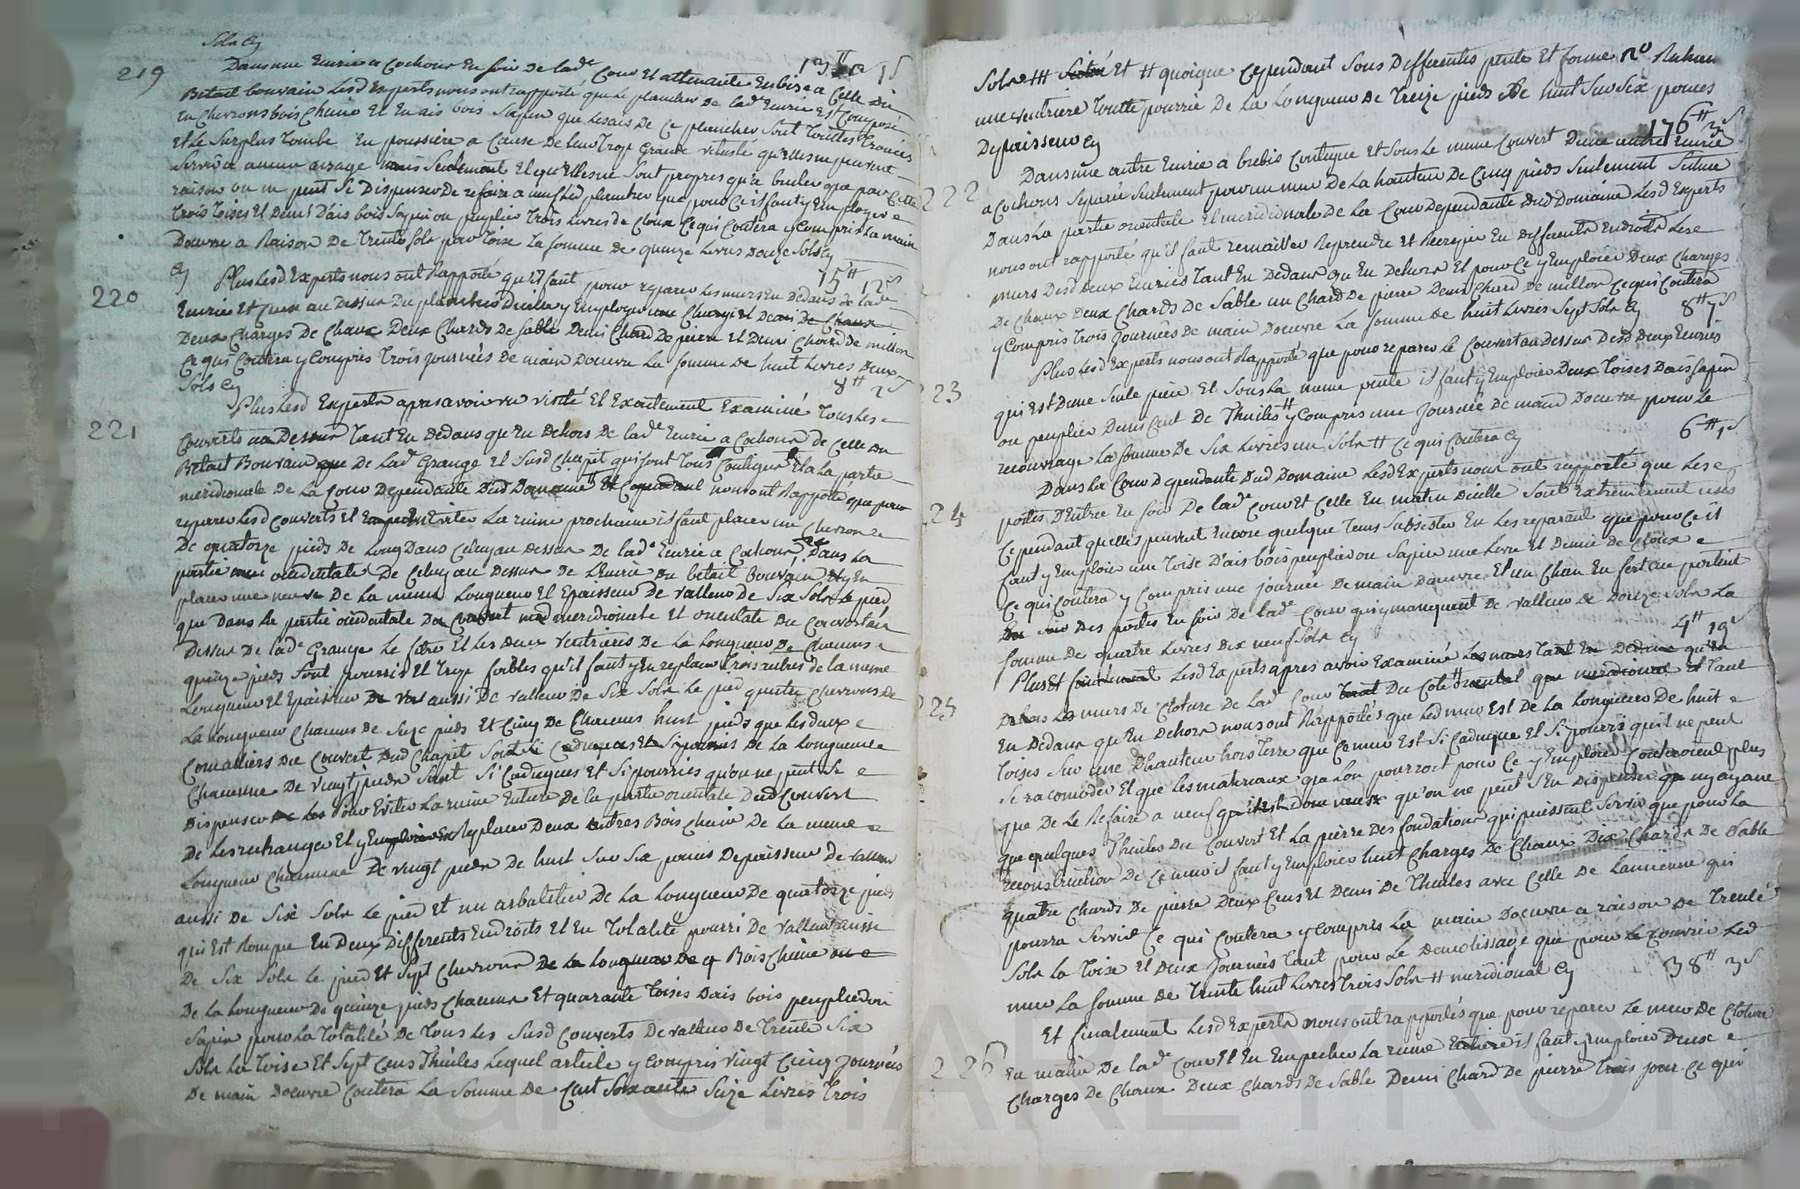 Sols Cy
13tt 12 s
219 Dans une Ecurie a Cochons En soir De lade Cour Et attenante En bise a Celle Du
Betail bouvain Lesd Experts nous ont rapporté que le plancher De lade Ecurie Est Composé
En Chevrons bois Chene Et En ais bois Sapin que Lesais De Ce plancher Sont Touttes Trouées
Et Le Surplus Tombe En poussiere a Cause De leur Trop Grande Vetusté qu'elles ne peuvent
Servir a aucun usage mais Seulement Et qu'elles ne Sont propres qu'a bruler que par Cette
raison on ne peut Se Dispenser De refaire a neuf led plancher que pour Ce il faut y Employer
Trois Toises Et Demi D'ais bois Sapin ou peuplier Trois Livres de Cloux Ce qui Coutera y Compris La main
Doeuvre a Raison De Trente Sols par Toise La Somme De quinze Livres Douze Sols Cy
Cy 15tt 12 s
220 Plus Lesd Experts nous ont Rapporté qu'il faut pour reparer Les murs En Dedans de lade
Ecurie Et Ceux au Dessus Du plancher D'icelle y Employer une Charge Et Demi De Chaux
Deux Charges De Chaux Deux Chards de Sable Demi Chard De pierre Et Demi Chard De millon
Ce qui Coutera y Compris Trois journées De main Doeuvre La Somme De huit Livres Deux
Sols Cy 8tt 2 s
221 Plus Lesd Experts apres avoir vu visité Et Exactement Examiné Tous Les
Couverts au Dessus Tant En Dedans qu'En Dehors De lade Ecurie a Cochons De Celle Du
Betail Bouvain que De lade Grange Et Susd Chapit qui Sont Tous Contigus Et a La partie
meridionale De La Cour Dependante Dud Domaine Et Cependant nous ont Rapporté que pour
reparer Lesd Couverts Et En Eviter La ruine prochaine il faut placer un Chevron
De quatorze pieds De Long Dans Celuy au Dessus De lade Ecurie a Cochons Dans La
partie occidentale De Celuy au Dessus De L'Ecurie Du betail Bouvain Et y En
placer une neuve De La meme Longueur Et Epaisseur De valleur De Six Sols Le pied
que Dans La partie occidentale Du Couvert meridionale Et orientale Du Couvert au
Dessus De lade Grange Le faite Et Les Deux Ventrieres De La Longueur De Chacuns
quinze pieds Sont pourries Et Trop foibles qu'il faut y En replacer Trois autres De la meme
Longueur Et Epaisseur aussi De valleur De Six Sols Le pied quatre Chevrons De
La Longueur Chacuns De Seize pieds Et Cinq De Chacuns huit pieds que Les deux
Cornalliers Du Couvert Dud Chapit De La Longueur
Chacunne De vingt pieds Sont Si Caduques Et Si pourries qu'on ne peut Se
Dispenser pour Eviter La ruine Entiere De la partie orientale Dud Couvert
De Les rechanger Et y En Replacer Deux autres Bois Chene De La meme
Longueur Chacunne De vingt pieds De huit Sur Six pouces Depaisseur De valleur
aussi De Six Sols Le pied Et un arbaletier De La Longueur De quatorze pieds
qui Est Rompue En Deux Differents Endroits Et En Totalité pourri De valleur aussi
De Six Sols Le pied Et Sept Chevrons De La Longueur De q Bois Chene
De La Longueur De quinze pieds Chacuns Et quarante Toises Dais bois peuplier ou
Sapin pour La Totalité De Tous Les Susd Couverts De valleur De Trente Six
Sols La Toise Et Sept Cens Thuiles Lequel article y Compris Vingt Cinq Journées
De main Doeuvre Coutera La Somme De Cent Soixante Seize Livres Trois
Sols Et quoique Cependant Sous Differentes pente Et forme
une ventriere Toutte pourrie De La Longueur De Treize pieds De huit Sur Six pouces
Depaisseur Cy 176tt 3 s
222 Dans une autre Ecurie a brebis Contigue Et Sous Le meme Couvert Dune autre Ecurie
a Cochons Separée Seulement par un mur De La hauteur De Cinq pieds Seulement Scituée
Dans La partie orientale Et meridionale De La Cour Dependante Dud Domaine Lesd Experts
nous ont rapporté qu'il faut remailler Reprendre Et Recrepir En Differents Endroits Les
murs Desd Deux Ecuries Tant En Dedans qu'En Dehors Et pour Ce y Emploier Deux Charges
De Chaux Deux Chards De Sable un Chard De pierre Demi Chard De millon Ce qui Coutera
y Compris Trois Journées De main Doeuvre La Somme De huit Livres Sept Sols Cy 8tt 7 s
223 Plus Lesd Experts nous ont Rapporté que pour reparer Le Couvert au Dessus Desd Deux Ecuries
qui Est Dune Seule piece Et Sous La meme pente il faut y Emploier Deux Toises Dais Sapin
ou peuplier Demi Cent De Thuiles y Compris une Journée De main Doeuvre pour Le
recouvrage La Somme De Six Livres un Sols Ce qui Coutera Cy 6tt 1 s
224 Dans La Cour Dependante Dud Domaine Lesd Experts nous ont rapporté que Les
portes D'Entrée En Soir De lade Cour Et Celle En matin D'icelle Sont Extremement usés
Cependant quelles peuvent Encore quelque Tems Subsister En Les reparant que pour Ce il
faut y Emploier une Toise D'ais bois peuplier ou Sapin une Livre Et Demie De Cloux
Ce qui Coutera y Compris une Journée De main Doeuvre Et un En fert au portant
Des portes En Soir De lade Cour qui y manquent De valleur De Douze Sols La
Somme De quatre Livres Dix neuf Sols Cy 4tt 19 s
225 Plus Et Lesd Experts apres avoir Examiné Les murs Tant En Dedans qu'En
Dehors Les murs De Cloture De lade Cour Tant Du Coté oriental que meridional Et Tant
En Dedans qu'En Dehors nous ont Rapportés que Led mur Est De La Longueur De huit
Toises Sur une D'hauteur hors Terre que Ce mur Est Si Caduque Et Si pourri qu'il ne peut
Se racomoder Et que Les materiaux qu'a Lon pourroit pour Ce y Emploier Couteroient plus
que De Le Refaire a neuf qu'on ne peut S'En Dispenser n'y ayant
que quelques Thuiles Du Couvert Et La pierre Des fondations qui puissent Servir que pour La
reconstruction De Ce mur il faut y Emploier huit Charges De Chaux Dix Chards De Sable
quatre Chards De pierre Deux Cens Et Demi De Thuiles avec Celle De Lancienne qui
pourra Servir Ce qui Coutera y Compris La main Doeuvre a raison De Trente
Sols La Toise Et Deux Journées Tant pour Le Demolissage que pour Le Couvrir Led
mur La Somme De Trente huit Livres Trois Sols meridional Cy 38tt 3 s
226 Et finalement Lesd Experts nous ont rapportés que pour reparer Le mur De Cloture
En matin De lade Cour Et En Empecher La ruine Entiere il faut y Emploier Deux
Charges De Chaux Deux Chards De Sable Demi Chard De pierre Trois jour Ce qui